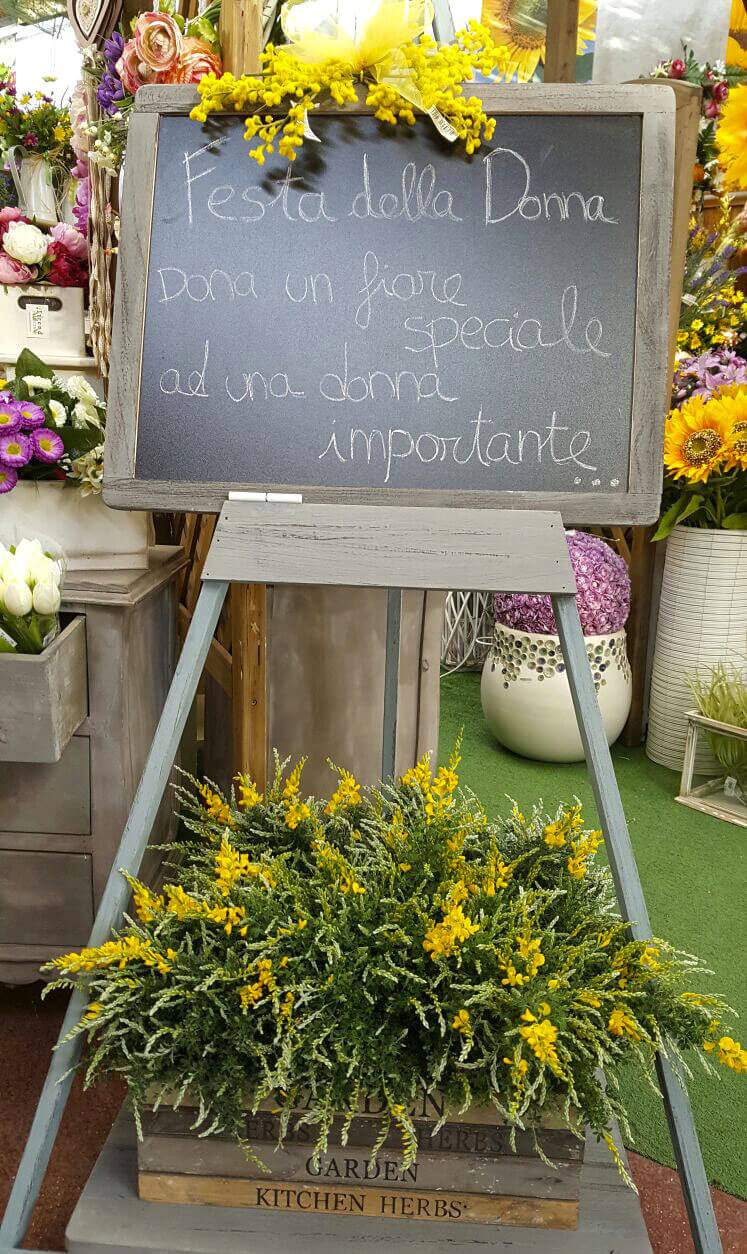 Festa della Donna
Dona un fiore
speciale
ad una donna
importante...
GARDEN
HERBS HERBS
GARDEN
KITCHEN HERBS